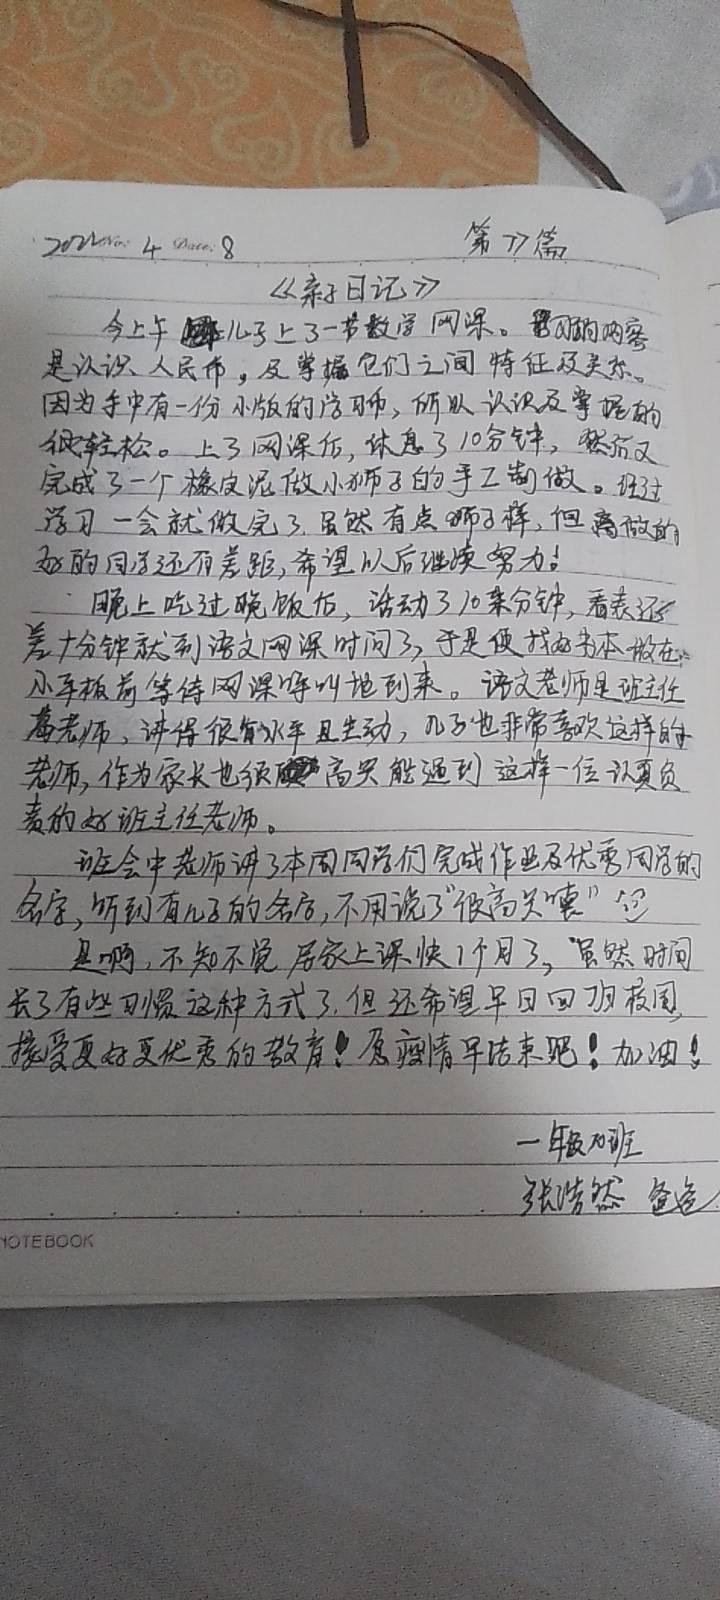 2022 No: 4 Date: 8 第77篇
《亲子日记》
今上午儿子上了一节数学网课。学习的内容
是认识人民币，及掌握它们之间特征及关系。
因为手中有一份小版的学习币，所以认识及掌握的
很轻松。上了网课后，休息了10分钟，然后又
完成了一个橡皮泥做小狮子的手工制做。经过
学习一会就做完了，虽然有点狮子样，但离做的
好的同学还有差距，希望以后继续努力！
晚上吃过晚饭后，活动了10来分钟，看表还
差十分钟就到语文网课时间了，于是便找好书本放在
小平板前等待网课呼叫地到来。语文老师是班主任
老师，讲得很有水平且生动，儿子也非常喜欢这样的
老师，作为家长也很高兴能遇到这样一位认真负
责的好班主任老师。
班会中老师讲了本周同学们完成作业及优秀同学的
名字，听到有儿子的名字，不用说了“很高兴噢”
是啊，不知不觉居家上课快1个月了，虽然时间
长了有些习惯这种方式了，但还希望早日回归校园，
接受更好更优秀的教育！愿疫情早结束吧！加油！
一年级 班
张浩然 爸爸
NOTEBOOK